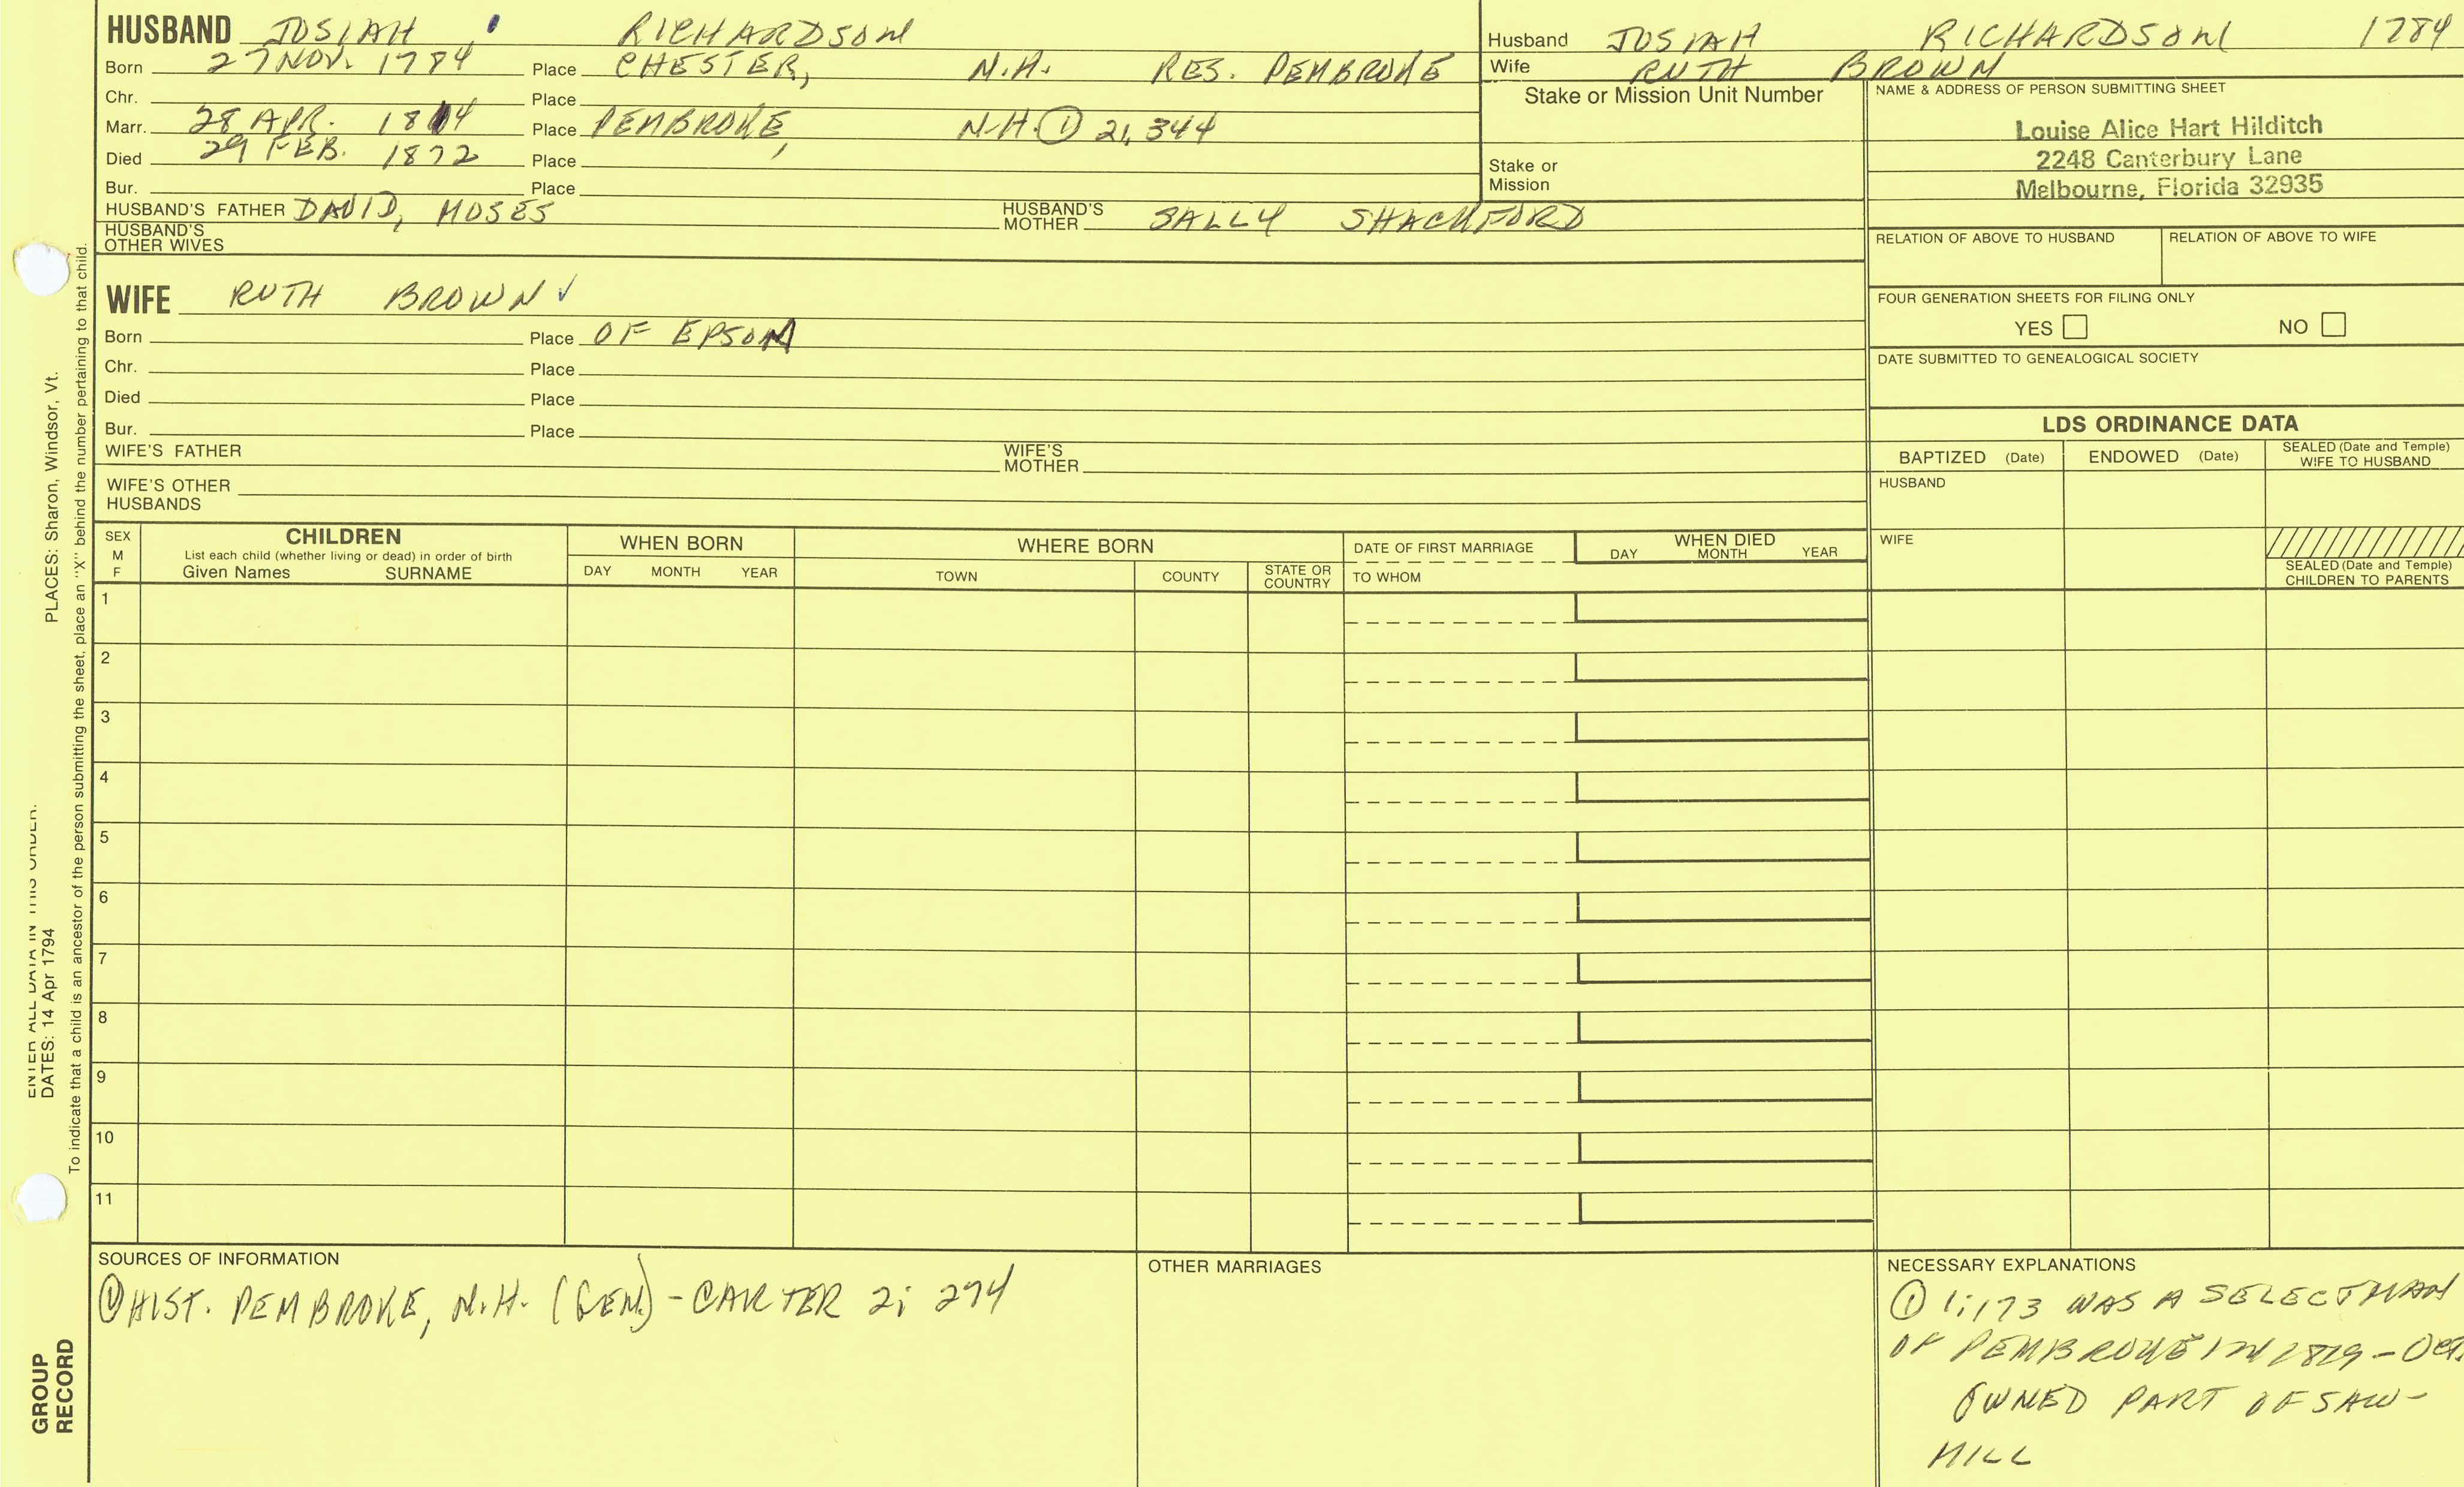 HUSBAND JOSIAH RICHARDSON
Born 27 NOV. 1784 Place CHESTER, N.H. RES. PEMBROKE
Chr. Place
Marr. 28 APR. 1814 Place PEMBROKE, N.H. ① 21, 344
Died 29 FEB. 1872 Place
Bur. Place
HUSBAND'S FATHER DAVID, MOSES HUSBAND'S MOTHER SALLY SHACKFORD
HUSBAND'S
OTHER WIVES
WIFE RUTH BROWN ✓
Born Place OF EPSOM
Chr. Place
Died Place
Bur. Place
WIFE'S FATHER WIFE'S MOTHER
WIFE'S OTHER
HUSBANDS
Husband JOSIAH RICHARDSON 1784
Wife RUTH BROWN
Stake or Mission Unit Number
Stake or
Mission
NAME & ADDRESS OF PERSON SUBMITTING SHEET
Louise Alice Hart Hilditch
2248 Canterbury Lane
Melbourne, Florida 32935
RELATION OF ABOVE TO HUSBAND RELATION OF ABOVE TO WIFE
FOUR GENERATION SHEETS FOR FILING ONLY
YES NO
DATE SUBMITTED TO GENEALOGICAL SOCIETY
LDS ORDINANCE DATA
BAPTIZED (Date) ENDOWED (Date) SEALED (Date and Temple) WIFE TO HUSBAND
HUSBAND
WIFE
SEALED (Date and Temple)
CHILDREN TO PARENTS
SEX
M
F
CHILDREN
List each child (whether living or dead) in order of birth
Given Names SURNAME
WHEN BORN
DAY MONTH YEAR
WHERE BORN
TOWN COUNTY STATE OR COUNTRY
DATE OF FIRST MARRIAGE
TO WHOM
WHEN DIED
DAY MONTH YEAR
1
2
3
4
5
6
7
8
9
10
11
SOURCES OF INFORMATION
① HIST. PEMBROKE, N.H. (GEN) - CARTER 2; 274
OTHER MARRIAGES
NECESSARY EXPLANATIONS
① 1;173 WAS A SELECTMAN
OF PEMBROKE IN 1829 -
OWNED PART OF SAW-
MILL
PLACES: Sharon, Windsor, Vt.
ENTER ALL DATA IN THIS ORDER.
DATES: 14 Apr 1794
To indicate that a child is an ancestor of the person submitting the sheet, place an "X" behind the number pertaining to that child.
GROUP
RECORD